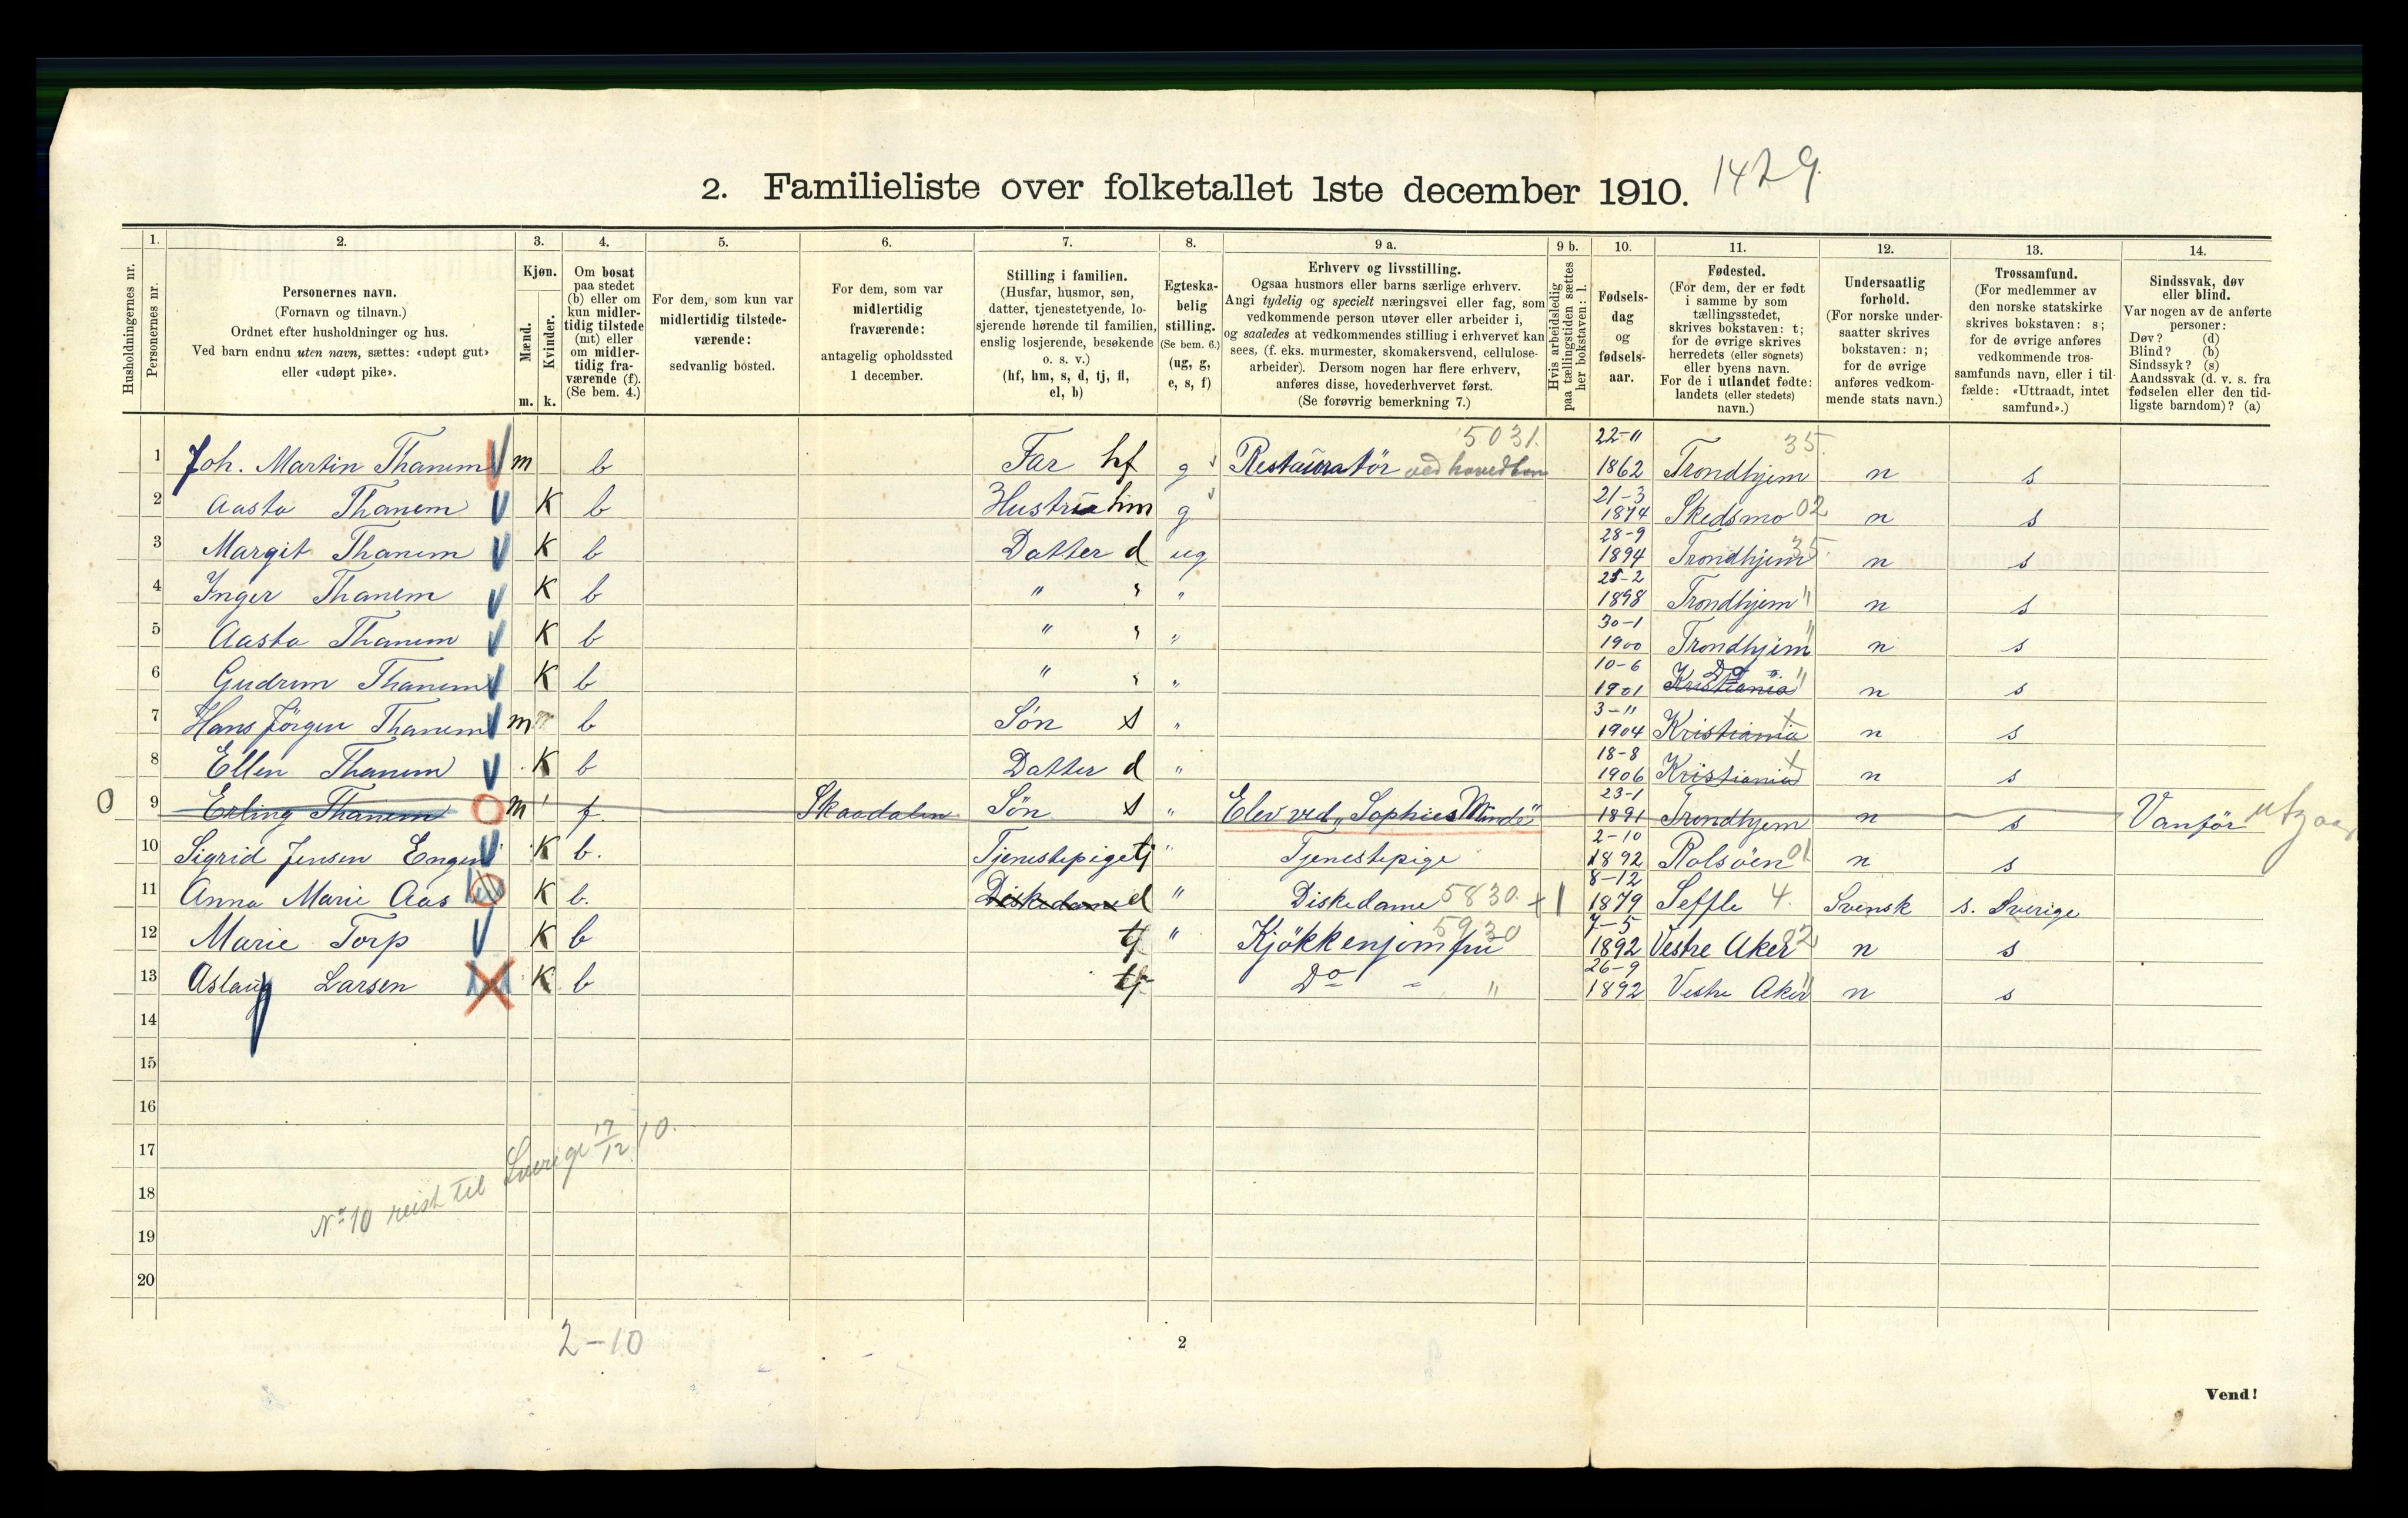 2. Familieliste over folketallet 1ste december 1910. 1429
Husholdningernes nr.
1. Personernes nr.
2. Personernes navn. (Fornavn og tilnavn.) Ordnet efter husholdninger og hus. Ved barn endnu uten navn, sættes: «udøpt gut» eller «udøpt pike».
3. Kjøn. Mænd. m. Kvinder. k.
4. Om bosat paa stedet (b) eller om kun midlertidig tilstede (mt) eller om midlertidig fraværende (f). (Se bem. 4.)
5. For dem, som kun var midlertidig tilstedeværende: sedvanlig bosted.
6. For dem, som var midlertidig fraværende: antagelig opholdssted 1 december.
7. Stilling i familien. (Husfar, husmor, søn, datter, tjenestetyende, losjerende hørende til familien, enslig losjerende, besøkende o. s. v.) (hf, hm, s, d, tj, fl, el, b)
8. Egteskabelig stilling. (Se bem. 6.) (ug, g, e, s, f)
9 a. Erhverv og livsstilling. Ogsaa husmors eller barns særlige erhverv. Angi tydelig og specielt næringsvei eller fag, som vedkommende person utøver eller arbeider i, og saaledes at vedkommendes stilling i erhvervet kan sees, (f. eks. murmester, skomakersvend, cellulosearbeider). Dersom nogen har flere erhverv, anføres disse, hovederhvervet først. (Se forøvrig bemerkning 7.)
9 b. Hvis arbeidsledig paa tællingstiden sættes her bokstaven: l.
10. Fødselsdag og fødselsaar.
11. Fødested. (For dem, der er født i samme by som tællingsstedet, skrives bokstaven: t; for de øvrige skrives herredets (eller sognets) eller byens navn. For de i utlandet fødte: landets (eller stedets) navn.)
12. Undersaatlig forhold. (For norske undersaatter skrives bokstaven: n; for de øvrige anføres vedkommende stats navn.)
13. Trossamfund. (For medlemmer av den norske statskirke skrives bokstaven: s; for de øvrige anføres vedkommende trossamfunds navn, eller i tilfælde: «Uttraadt, intet samfund».)
14. Sindssvak, døv eller blind. Var nogen av de anførte personer: Døv? (d) Blind? (b) Sindssyk? (s) Aandssvak (d. v. s. fra fødselen eller den tidligste barndom)? (a)
1 Joh. Martin Thanem m b Far hf g Restauratör ved hovedban 5031. 22-11 1862 Trondhjem 35. n s
2 Aasta Thanem K b Hustru hm g 21-3 1874 Skedsmo 02 n s
3 Margit Thanem K b Datter d ug 28-9 1894 Trondhjem 35. n s
4 Inger Thanem K b " " " 25-2 1898 Trondhjem " n s
5 Aasta Thanem K b " " " 30-1 1900 Trondhjem " n s
6 Gudrun Thanem K b " " " 10-6 1901 Kristiania Do " n s
7 Hans Jörgen Thanem m b Sön s " 3-11 1904 Kristiania t n s
8 Ellen Thanem K b Datter d " 18-8 1906 Kristiania t n s
0 9 Erling Thanem m f. Skaadalen Sön s " Elev ved "Sophies Minde" 23-1 1891 Trondhjem n s Vanför utgaar
10 Sigrid Jensen Engen K b. Tjenestepige tj " Tjenestepige 2-10 1892 Rolsöen 01 n s
11 Anna Marie Aas K b. Diskedame el " Diskedame 5830. 8-12 1879 Seffle 4. Svensk s. Sverige
12 Marie Torp K b tj " Kjökkenjomfru 5930 7-5 1892 Vestre Aker 02 n s
13 Aslaug Larsen K b tj Do " 26-9 1892 Vestre Aker " n s
14
15
16
17
18
19
20
No 10 reist til Sverige 17/12 10.
2-10
2
Vend!